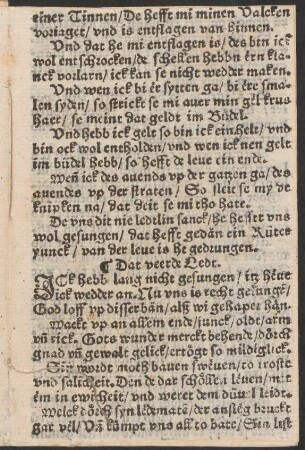 einer Tinnen/De hefft mi minen Valcken
voriaget/vnd is entflagen van hinnen.
Vnd dat he mi entflagen is/des bin ick
wol entschrocken/de schellen hebbn ern kla-
nck vorlarn/ick kan se nicht wedder maken.
Vnd wen ick bi er sytten ga/bi ere sma-
len syden/so strickt se mi auer min gel krus
haer/se meint dat geldt im Büdel.
Vnd hebb ick gelt so bin ick ein helt/vnd
bin ock wol entholden/vnd wen ick nen gelt
im büdel hebb/so hefft de leue ein ende.
Weñ ick des auends vp der gatzen ga/des
auendes vp der straten/So sleit se my de
knipken na/dat deit se mi tho hate.
De vns dit nie ledtlin sanck/he hefft vns
wol gesungen/dat hefft gedan ein Rüter
yunck/van der leue is he gedrungen.
¶ Dat veerde Ledt.
ICk hebb lang nicht gesungen/itz heue
ick wedder an. Nu vns is recht gelungẽ/
God loff vp disser bãn/alß wi gehapet hãn.
Waket vp an allem ende/junck/oldt/arm
vñ rick. Gots wunder mercket behende/dörch
gnad vñ gewalt gelick/ertögt so mildiglick.
moth bauen sweuen/to troste
vnd salicheit. Den de dar schöllen leuen/mit
em in ewicheit/vnd weret dem düuel leidt.
Welck dörch syn ledematẽ/der anslég bruckt
gar vél/Vñ kümpt vns all to bate/Sin list